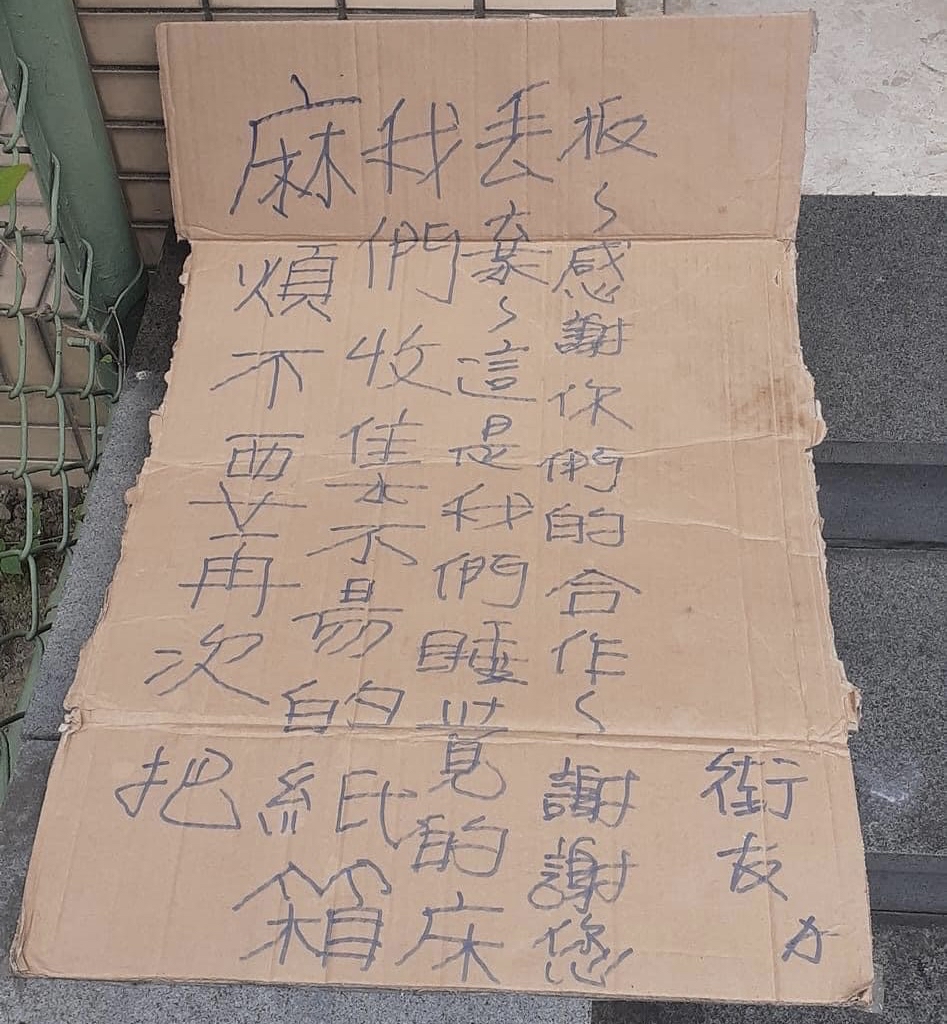 麻煩不要再次把
我們收集不易的紙箱
丟棄~這是我們睡覺的床
板~感謝你們的合作~謝謝您
街友